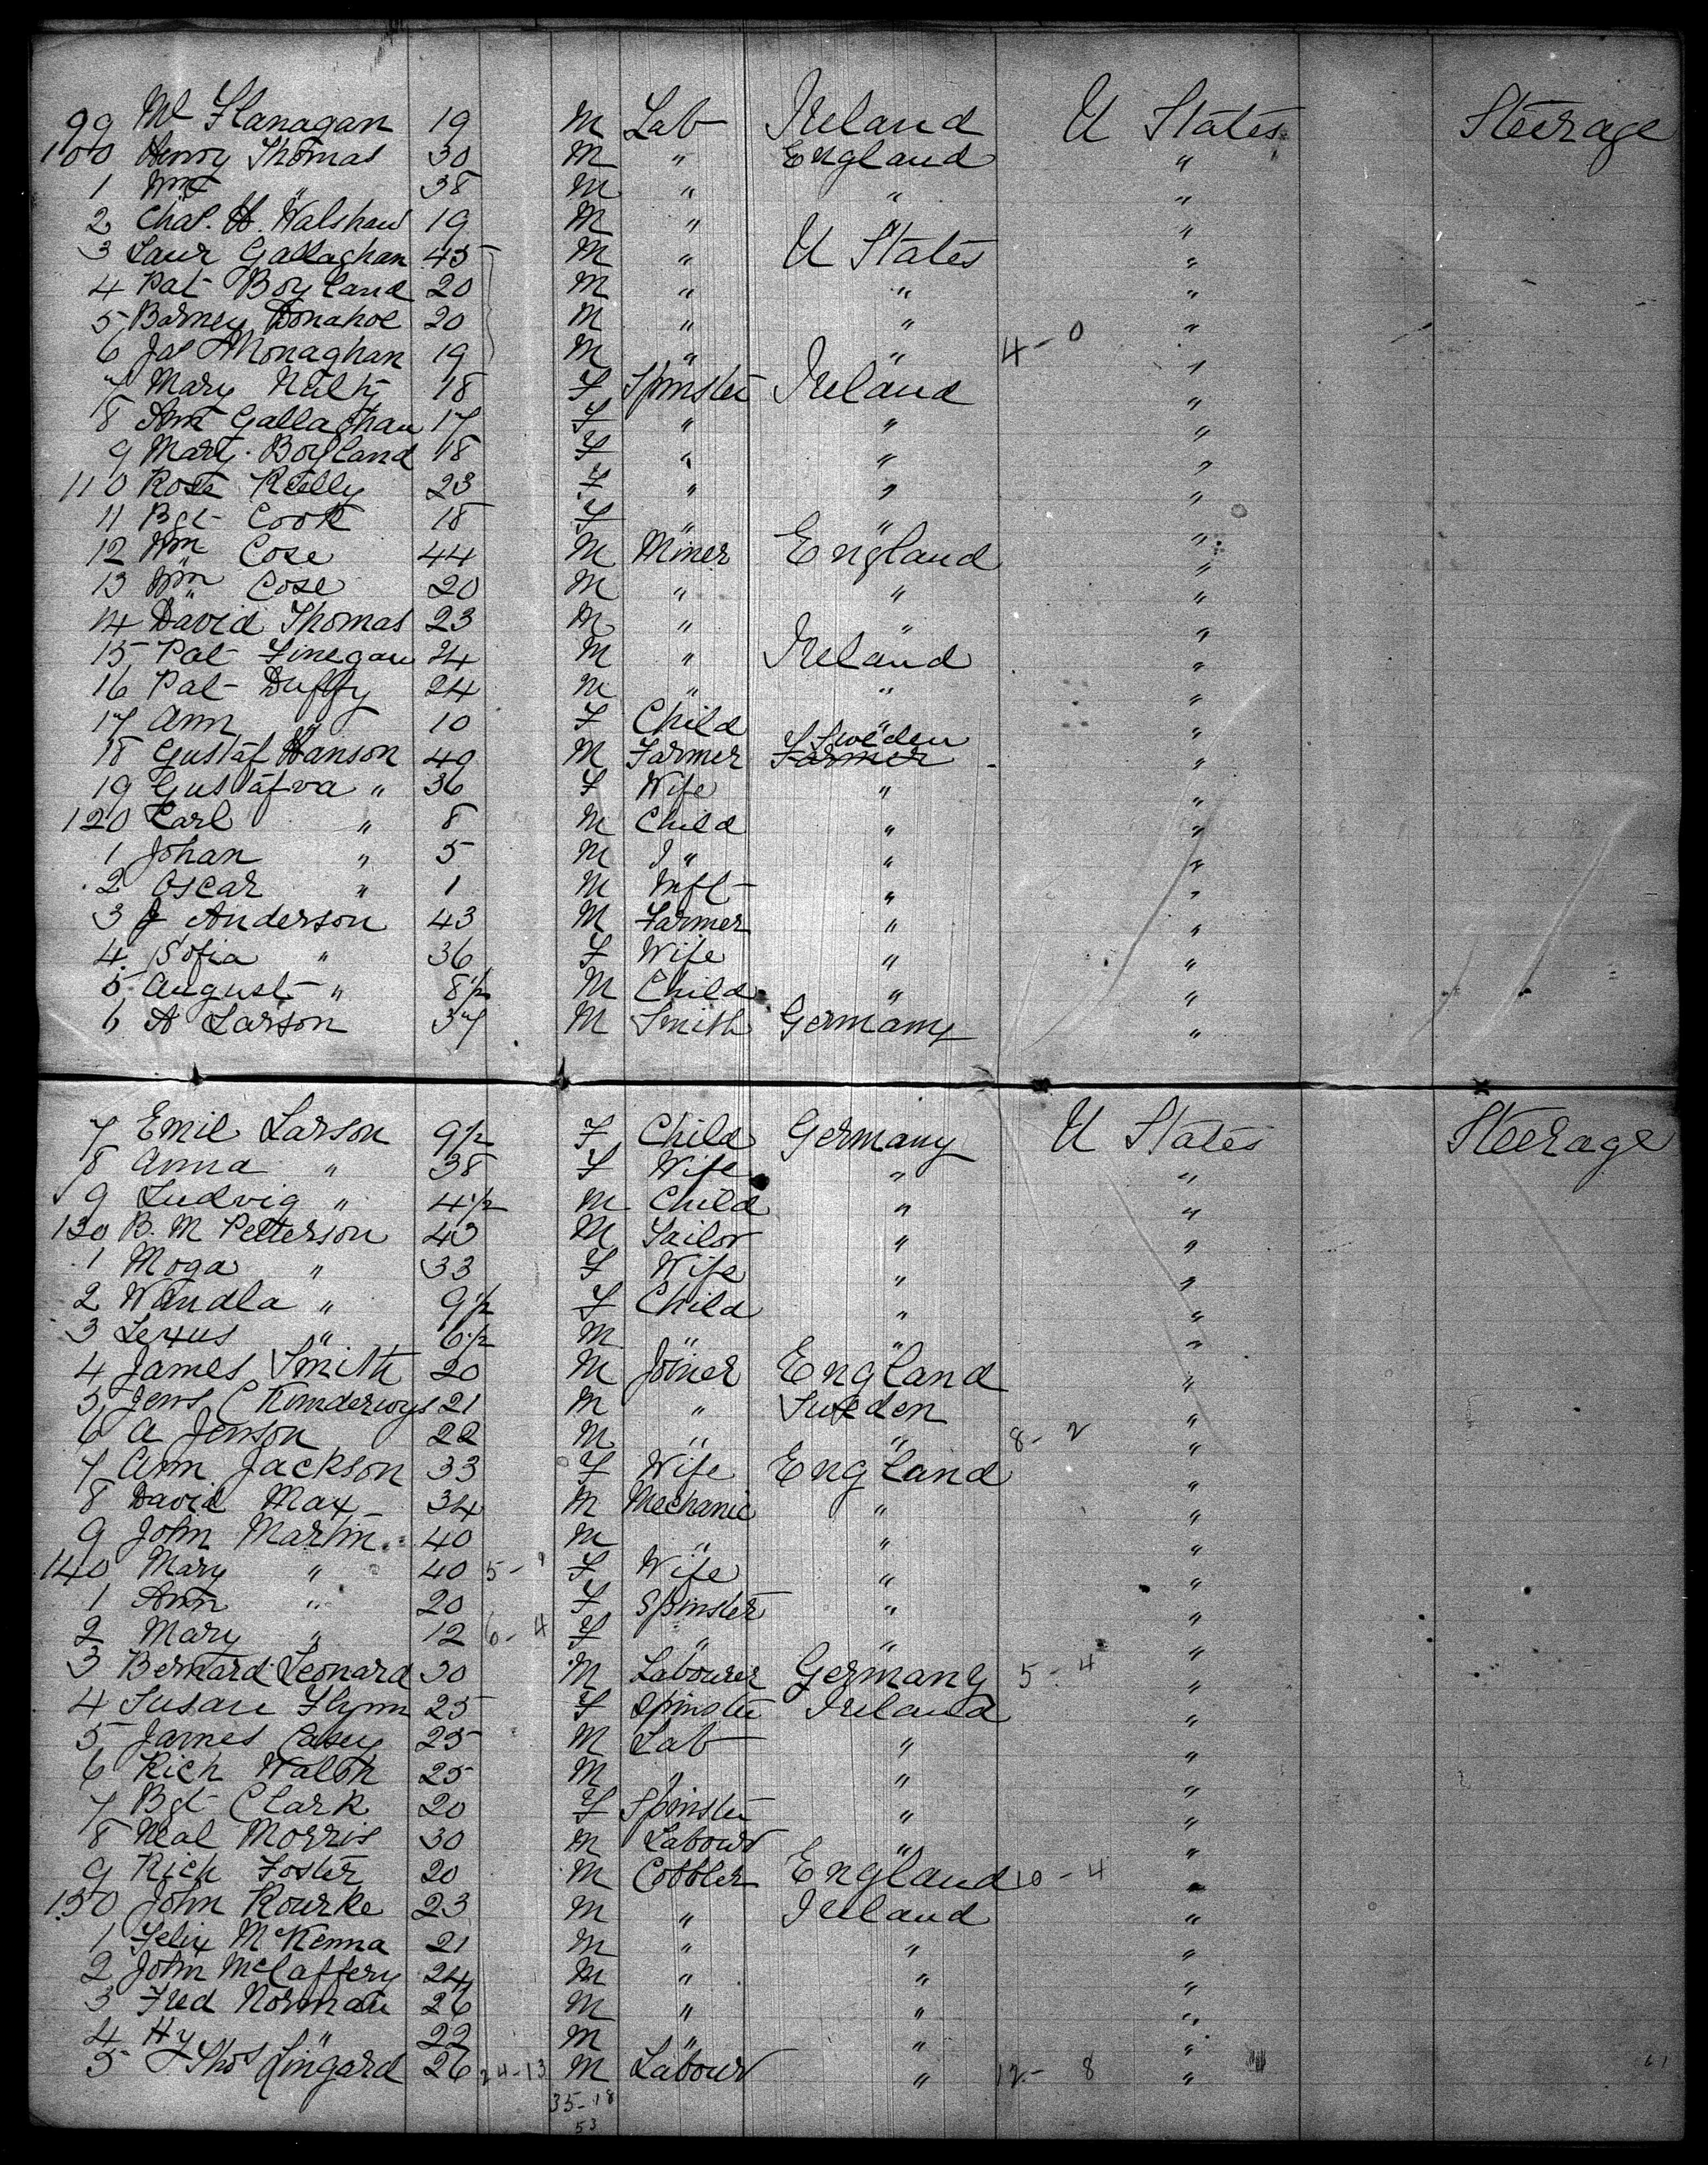 99 Ml Flanagan 19 M Lab Ireland U States Steerage
100 Henry Thomas 30 M " England "
1 Wm " 38 M " " "
2 Chas. H. Walshaw 19 M " "
3 Laur Gallaghan 45 M " U States "
4 Pat Boyland 20 M " " "
5 Barney Donahoe 20 M " " "
6 Jas Monaghan 19 M " " 4-0 "
7 Mary Nulty 18 F Spinster Ireland "
8 Ann Gallaghan 17 F " " "
9 Mart. Boyland 18 F " " "
110 Rose Reilly 23 F " " "
11 Bgt Cook 18 F " " "
12 Wm Cose 44 M Miner England "
13 Wm Cose 20 M " " "
14 David Thomas 23 M " " "
15 Pat Finegan 24 M " Ireland "
16 Pat Duffy 24 M " " "
17 Ann " 10 F Child " "
18 Gustaf Hanson 40 M Farmer Sweden "
19 Gustafva " 36 F Wife " "
120 Carl " 8 M Child " "
1 Johan " 5 M " " "
2 Oscar " 1 M Inft " "
3 J Anderson 43 M Farmer " "
4 Sofia " 36 F Wife " "
5 August " 8 1/2 M Child " "
6 A Larson 37 M Smith Germany "
7 Emil Larson 9 1/2 F Child Germany U States Steerage
8 Anna " 38 F Wife " "
9 Ludvig " 4 1/2 M Child " "
130 B. M Petterson 43 M Sailor " "
1 Moga " 33 F Wife " "
2 Wandla " 9 1/2 F Child " "
3 " 6 1/2 M " " "
4 James Smith 20 M Joiner England "
5 Jens 21 M " Sweden "
6 A Jenson 22 M " " 8-2 "
7 Ann Jackson 33 F Wife England "
8 David Max 34 M Mechanic " "
9 John Martin 40 M " " "
140 Mary " 40 5-1 F Wife " "
1 Ann " 20 F Spinster " "
2 Mary " 12 6-4 F " " "
3 Bernard Leonard 30 M Labourer Germany 5-4 "
4 Susan Flynn 25 F Spinster Ireland "
5 James Casey 25 M Lab " "
6 Rich Walsh 25 M " " "
7 Bgt Clark 20 F Spinster " "
8 Neal Morris 30 M Labour " "
9 Rich Foster 20 M Cobbler England 10-4 "
150 John Rourke 23 M " Ireland "
1 Felix McKenna 21 M " " "
2 John McCaffery 24 M " " "
3 Fred Norman 26 M " " "
4 Hy " 22 M " " "
5 Thos Lingard 26 24-13 M Labour " 12-8 "
35-18
53